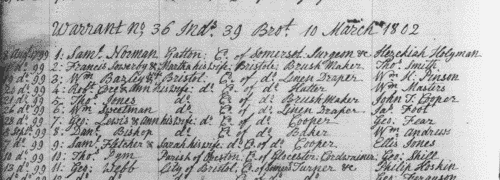 Warrant No. 36 Inds. 39 Brot. 10 March 1802
Augt. 99 1: Saml. Norman Yatton Co. of Somerset Surgeon & Hezekiah Holyman
do. 99 2: Francis & Martha his wife Bristol Brush Maker Thos. Smith
do. 99 3: Wm. Bazley Bristol Co. of do. Linen Draper Wm. K. Pinson
do. 99 4: Robt. & Ann his wife do. Co. of do. Hatter Wm. Masters
do. 99 5: Thos. Jones do. Co. of do. Brush Maker John T. Cooper
do. 99 6: Wm. do. Co. of do. Linen Draper Jas. Foot
do. 99 7: Geo: Lewis & Ann his wife do. Co. of do. Cooper Geo: Fear
Sept. 99 8: Danl. Bishop do. Co. of do. Baker Wm. Andrews
7 do. 99 9: Saml. Fletcher & Sarah his wife do. Co. of do. Cooper Ellis Jones
10 do. 99 10: Thos. Pym Parish of Co. of Glocester Cordwainer Geo: Shill
13 do. 99 11: Geo: Webb City of Bristol, Co. of same Turner & Philip Hoskin